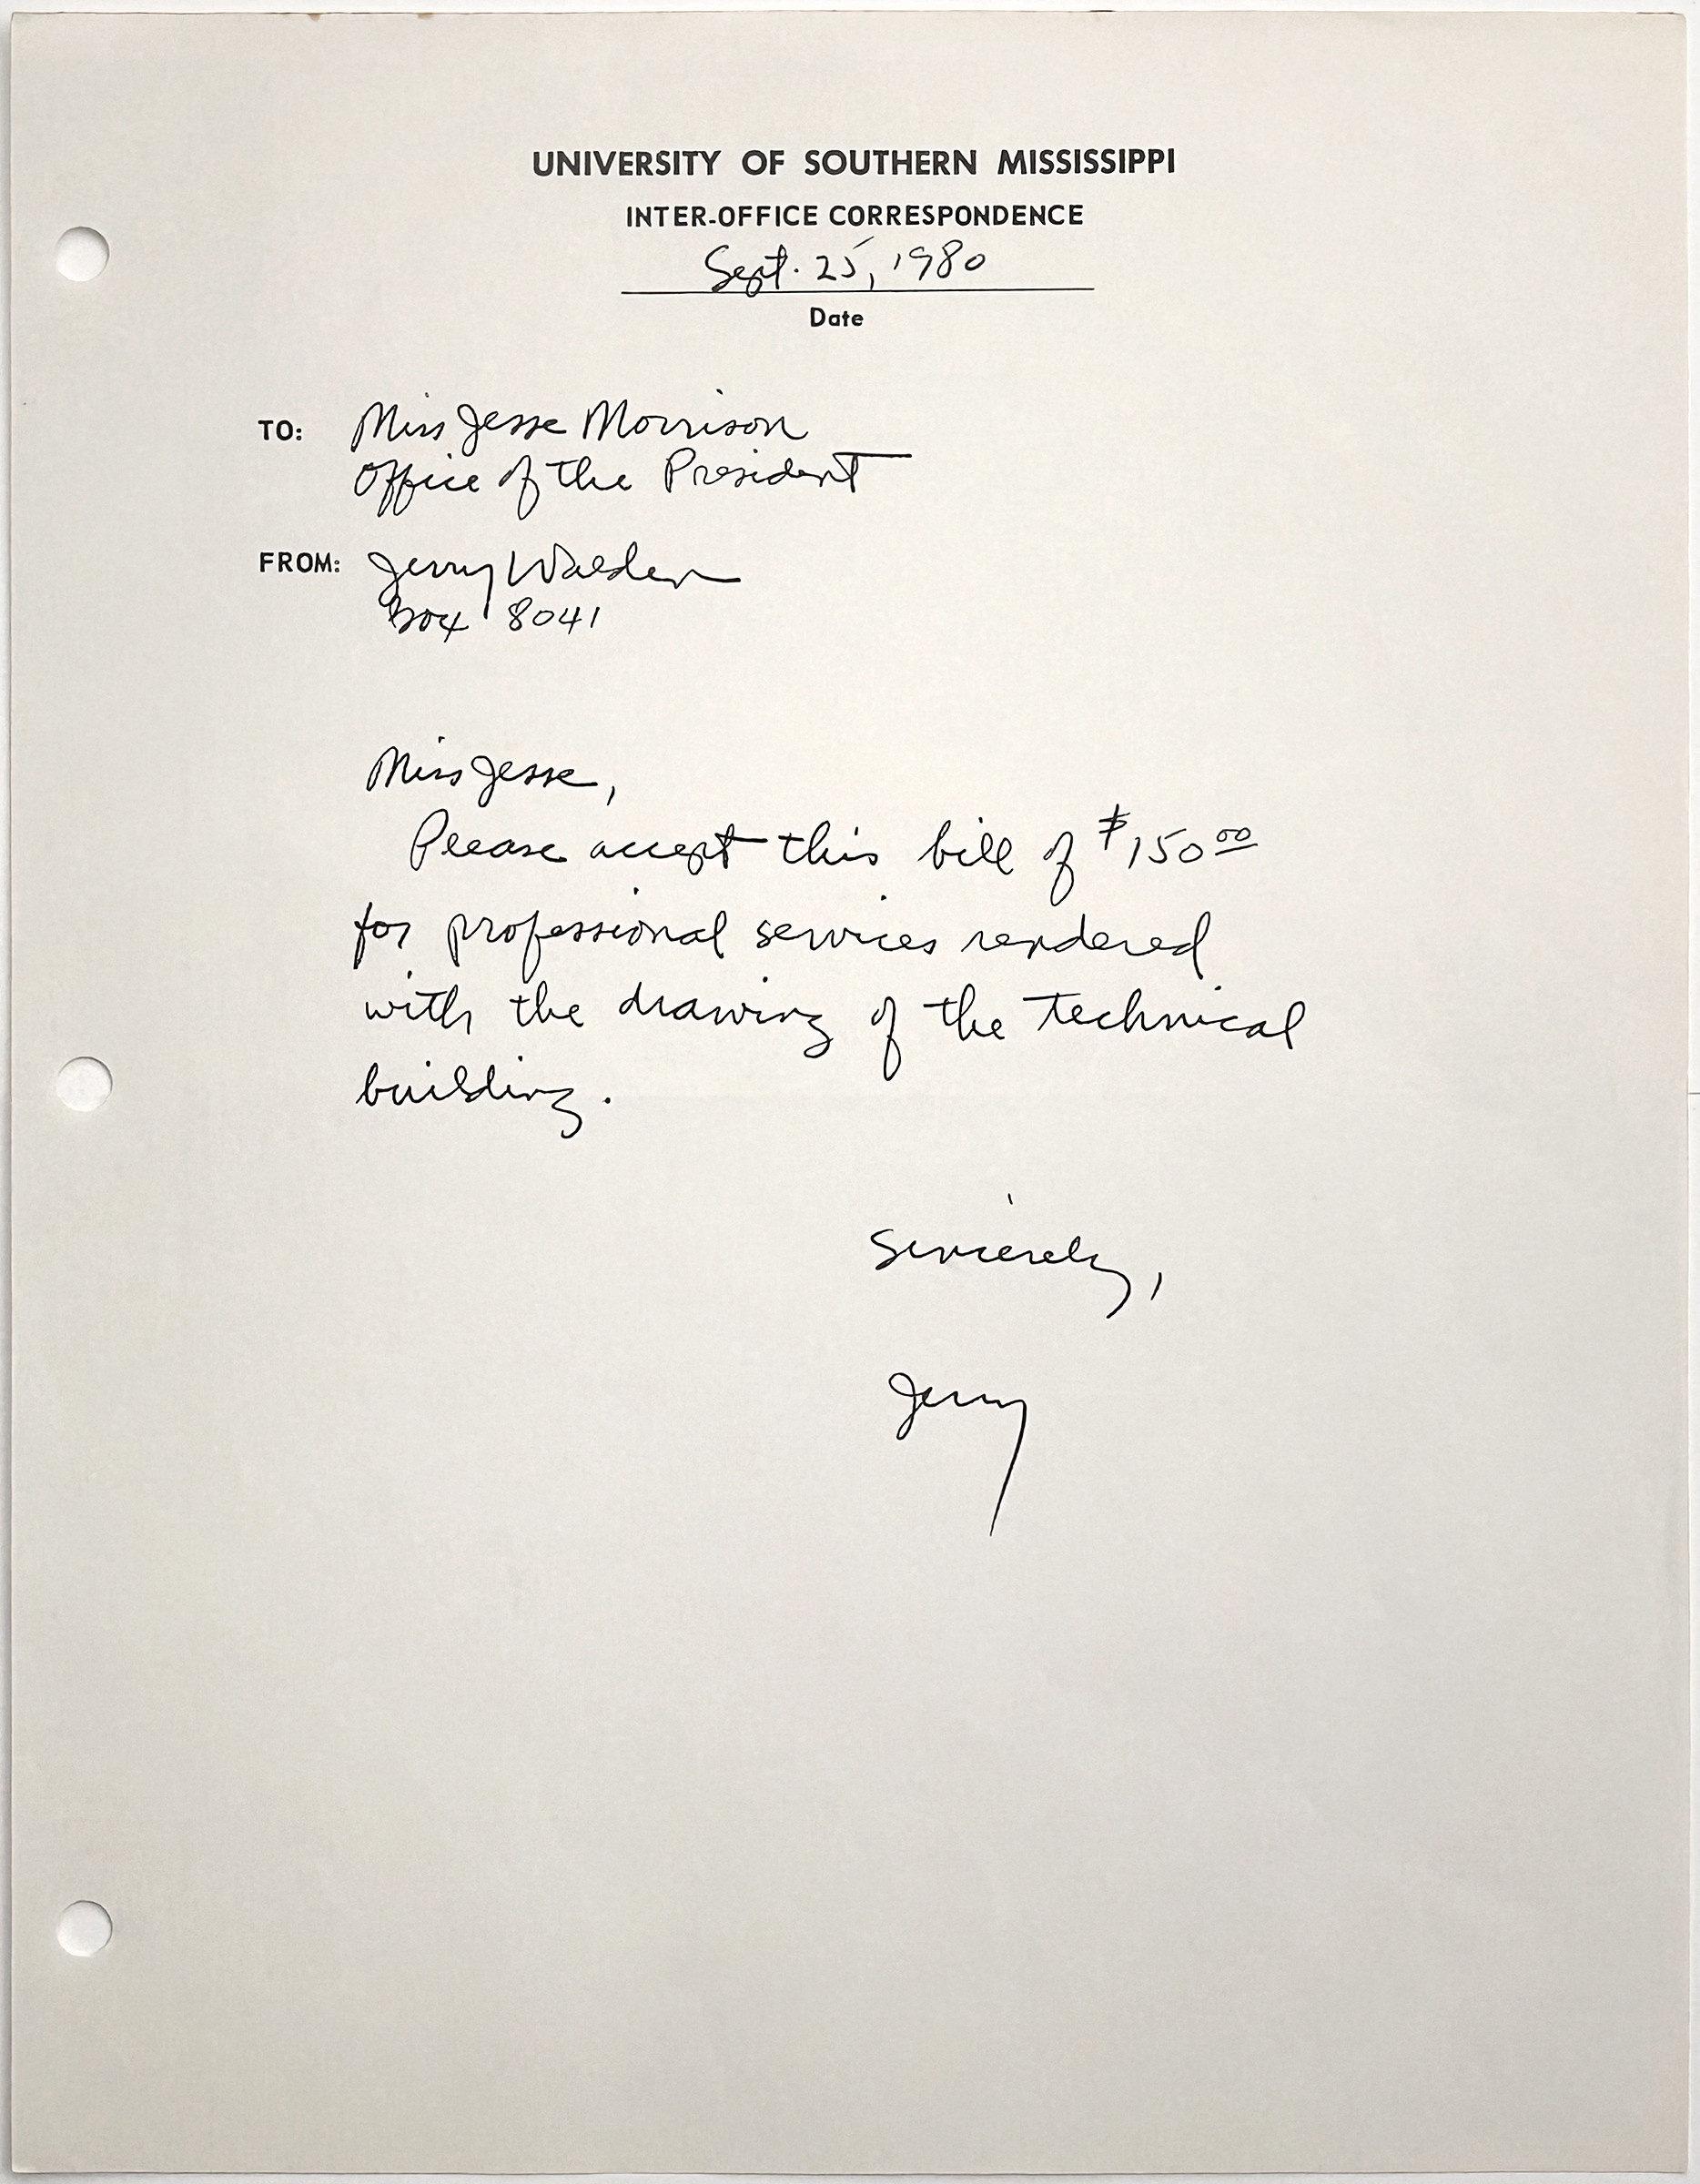 UNIVERSITY OF SOUTHERN MISSISSIPPI
INTER-OFFICE CORRESPONDENCE
Sept. 25, 1980
Date
TO: Miss Jesse Morrison
Office of the President
FROM: Jerry Walden
Box 8041
Miss Jesse,
Please accept this bill of $150.00
for professional services rendered
with the drawing of the technical
building.
Sincerely,
Jerry